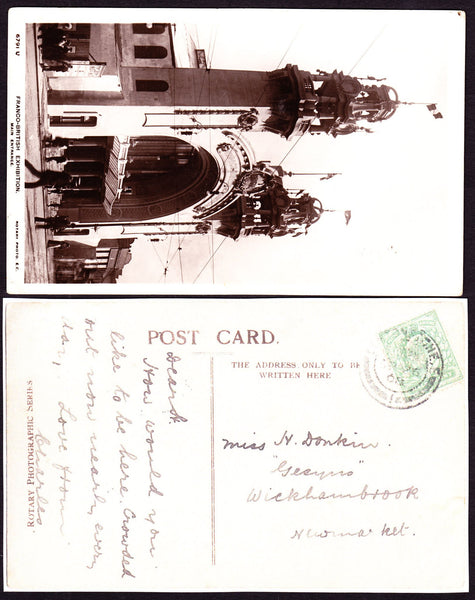 6791 U
FRANCO-BRITISH EXHIBITION.
MAIN ENTRANCE.
ROTARY PHOTO. E.C.
POST CARD.
THE ADDRESS ONLY TO BE
WRITTEN HERE
ROTARY PHOTOGRAPHIC SERIES
How would you
like to be here. Crowded
out now nearly every
day, Love from
Charles.
Miss N. Donkin.
"Gesyns"
Wickhambrook
Newmarket.